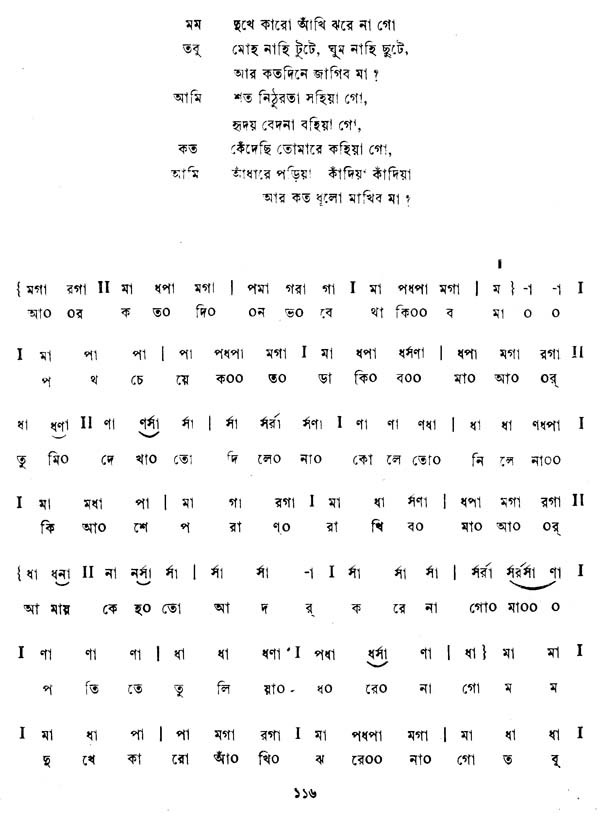 মম দুখে কারো আঁখি ঝরে না গো
তবু মোহ নাহি টুটে, ঘুম নাহি ছুটে,
আর কতদিনে জাগিব মা ?
আমি শত নিঠুরতা সহিয়া গো,
হৃদয় বেদনা বহিয়া গো,
কত কেঁদেছি তোমারে কহিয়া গো,
আমি আঁধারে পড়িয়া কাঁদিয়া কাঁদিয়া
আর কত ধূলো মাখিব মা ?
{ মগা রগা II মা ধপা মগা | পমা গরা গা I মা পধপা মগা | ম } -া -া I
আ০ ০র ক ত০ দি০ ০ন ভ০ বে থা কি০০ ব মা ০ ০
I মা পা পা | পা পধপা মগা I মা ধপা ধর্সণা | ধপা মগা রগা II
প থ চে য়ে ক০০ ত০ ডা কি০ ব০০ মা০ আ০ ০র্
ধা ধণা II ণা ণর্সা র্সা | র্সা র্সর্রা র্সণা I ণা ণা ণধা | ধা ধা ণধপা I
তু মি০ দে খা০ তো দি লে০ না০ কো লে তো০ নি লে না০০
I মা মধা পা | মা গা রগা I মা ধা র্সণা | ধপা মগা রগা II
কি আ০ শে প রা ণ০ রা খি ব০ মা০ আ০ ০র্
{ ধা ধনা II না নর্সা র্সা | র্সা র্সা -া I র্সা র্সা র্সা | র্সর্রা র্সর্রর্সা ণা I
আ মায় কে হ০ তো আ দ র্ ক রে না গো০ মা০০ ০
I ণা ণা ণা | ধা ধা ধণা I পধা ধর্সা ণা | ধা } মা মা I
প তি তে তু লি য়া০ ধ০ রে০ না গো ম ম
I মা ধা পা | পা মগা রগা I মা পধপা মগা | মা ধা ধা I
দু খে কা রো আঁ০ খি০ ঝ রে০০ না০ গো ত বু
১১৬